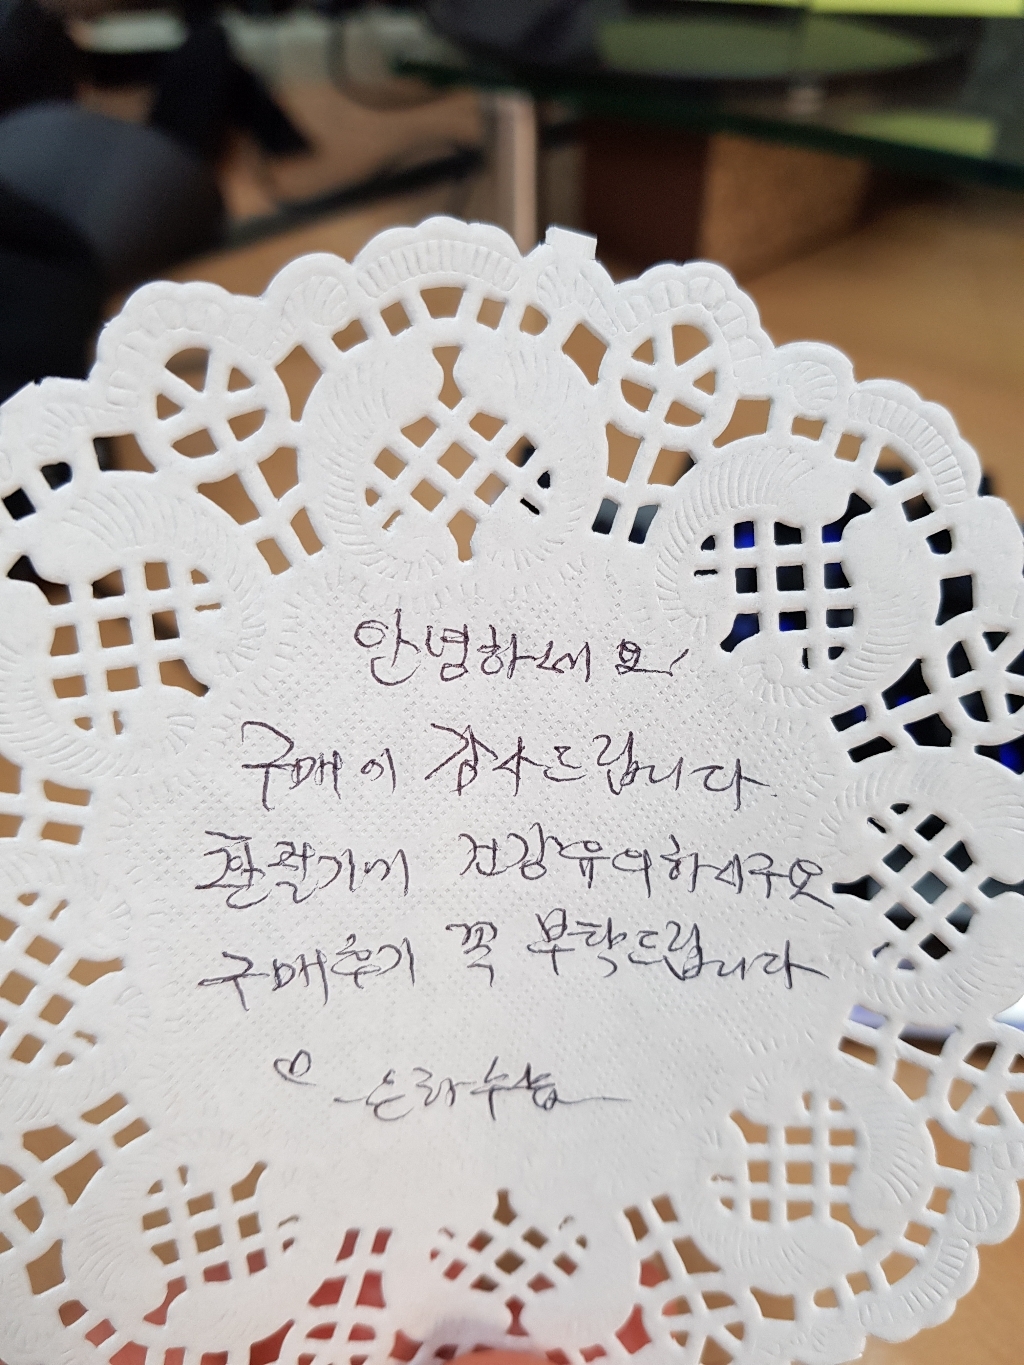 안녕하세요
구매에 감사드립니다
환절기에 건강유의하시구요
구매후기 꼭 부탁드립니다